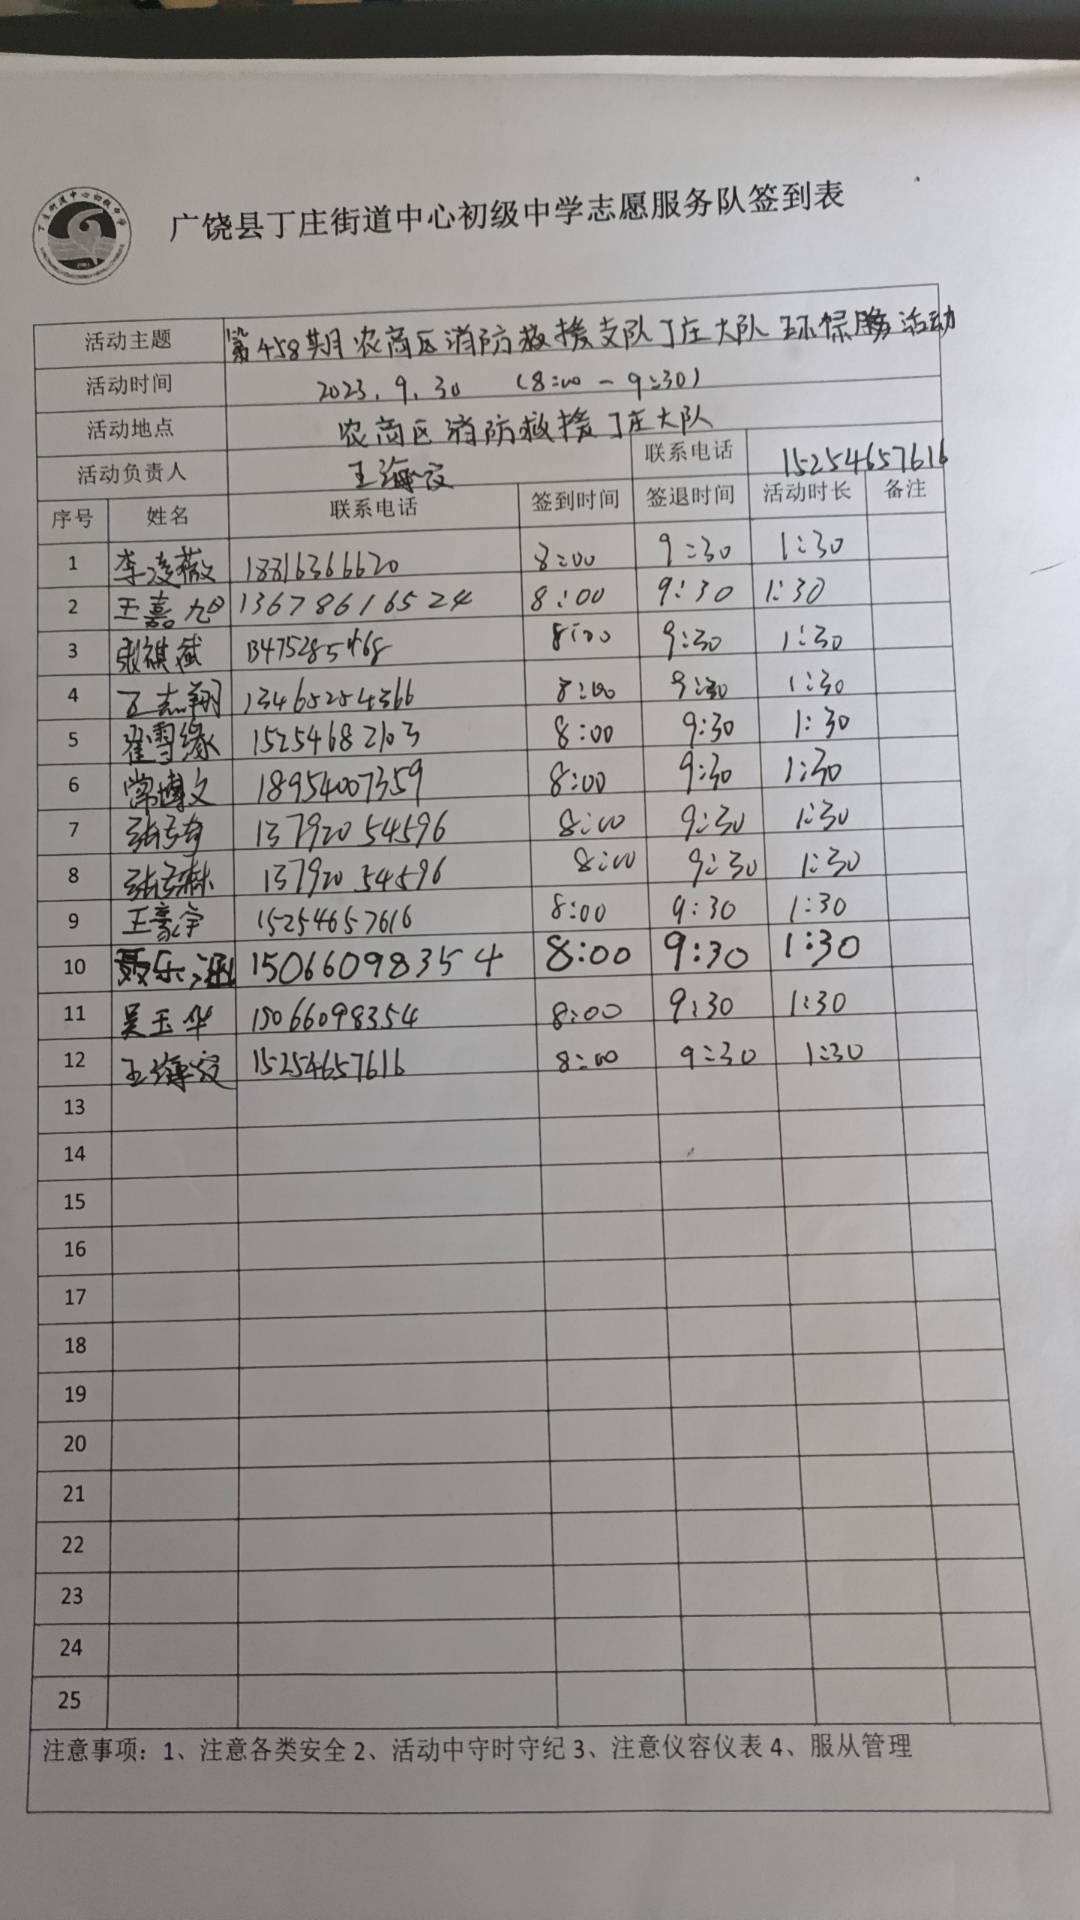 广饶县丁庄街道中心初级中学志愿服务队签到表
活动主题 第458期农商区消防救援支队丁庄大队环保服务活动
活动时间 2023.9.30 (8:00-9:30)
活动地点 农商区消防救援丁庄大队
活动负责人 王海 联系电话 15254657616
序号 姓名 联系电话 签到时间 签退时间 活动时长 备注
1 李凌薇 18816366620 8:00 9:30 1:30
2 王嘉旭 13678616524 8:00 9:30 1:30
3 张祺斌 13475285468 8:00 9:30 1:30
4 王志翔 13465254366 8:00 9:30 1:30
5 翟雪缘 15254682103 8:00 9:30 1:30
6 常博文 18954007359 8:00 9:30 1:30
7 13792054596 8:00 9:30 1:30
8 13792054596 8:00 9:30 1:30
9 王豪宇 15254657616 8:00 9:30 1:30
10 聂乐涵 15066098354 8:00 9:30 1:30
11 吴玉华 15066098354 8:00 9:30 1:30
12 王海 15254657616 8:00 9:30 1:30
13
14
15
16
17
18
19
20
21
22
23
24
25
注意事项：1、注意各类安全 2、活动中守时守纪 3、注意仪容仪表 4、服从管理